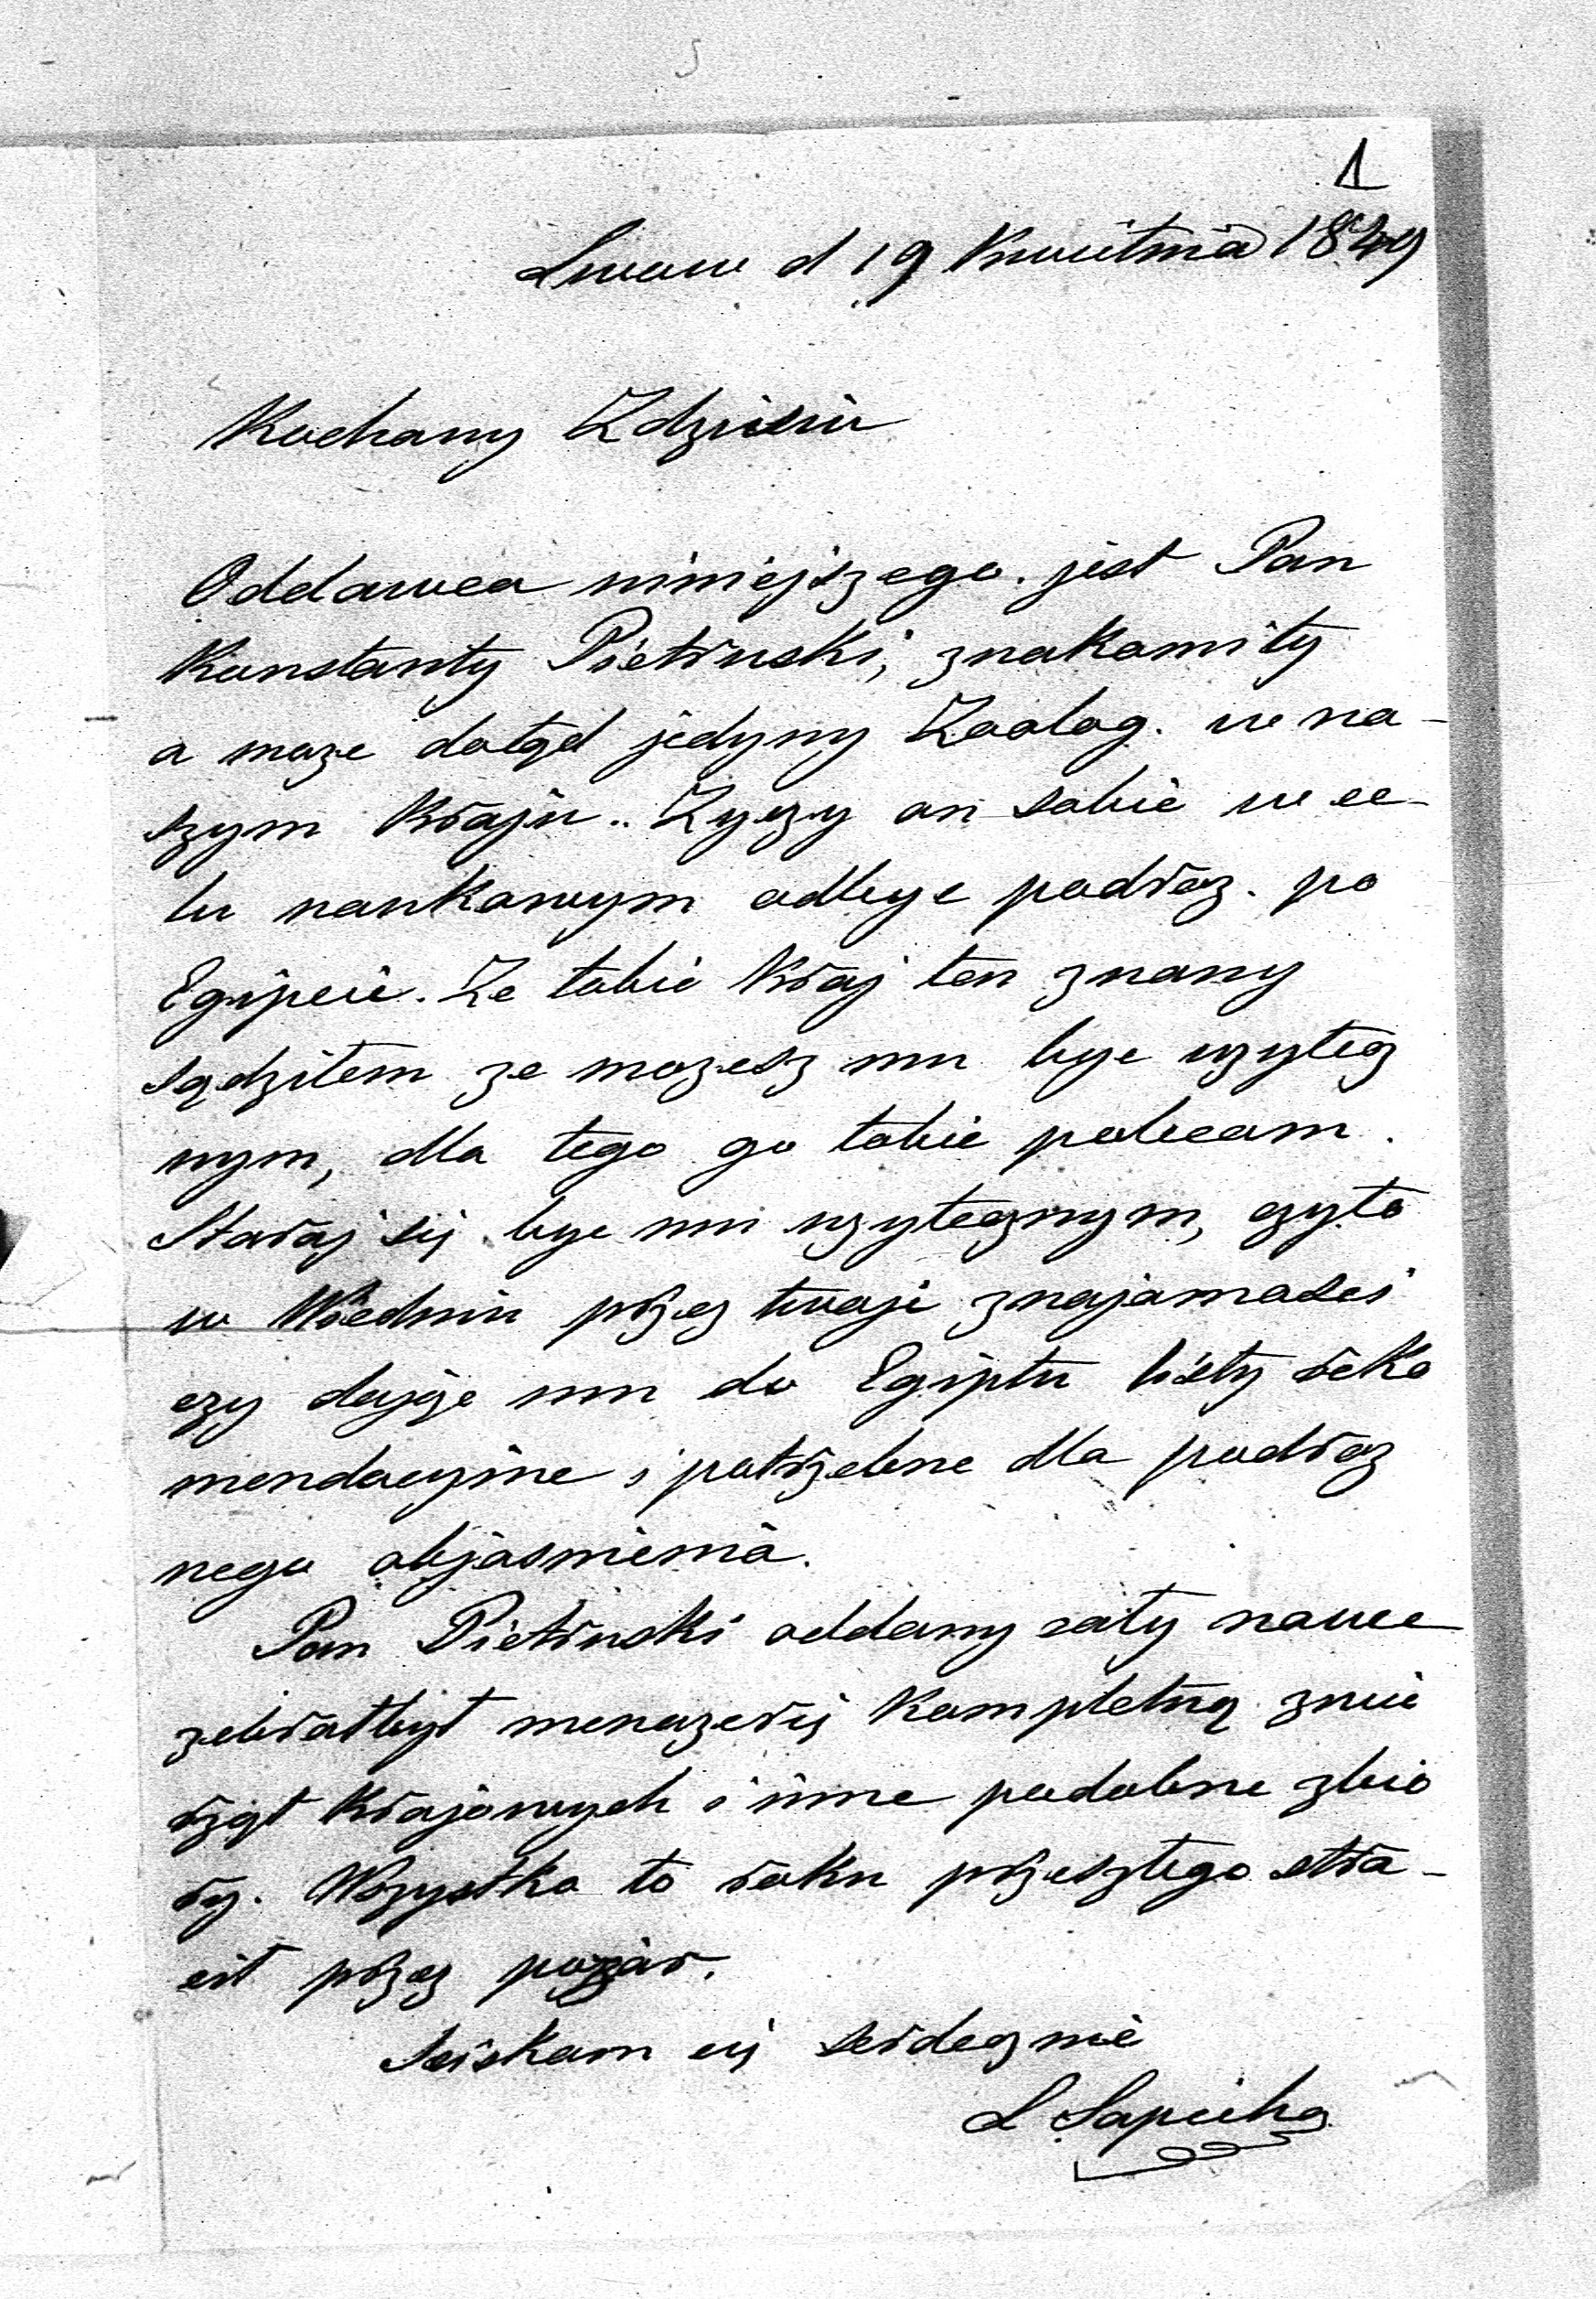 1
Lwow d 19 Kwietnia 1849
Kochany Zdzisiu
Oddawca niniejszego jest Pan
Konstanty Pietruski, znakomity
a moze dotąd jedyny Zoolog. w na-
szym Kraju. Zyczy on sobie w ce-
lu naukowym odbyc podroz. po
Egipcie. Ze tobie Kraj ten znany
sądziłem ze mozesz mu byc uzytecz
nym, dla tego go tobie polecam.
Staraj się byc mu uzytecznym, czyto
w Wiedniu przez twoje znajomosci
czy dając mu do Egiptu listy reko
mendacyjne i potrzebne dla podroz
nego objasnienia.
Pan Pietruski oddany cały nauce
zebrał był menazerię Kompletną zwie
rząt Krajowych i inne podobne zbio
ry. Wszystko to roku przeszłego stra-
cił przez pozar.
Sciskam cię serdecznie
L Sapieha